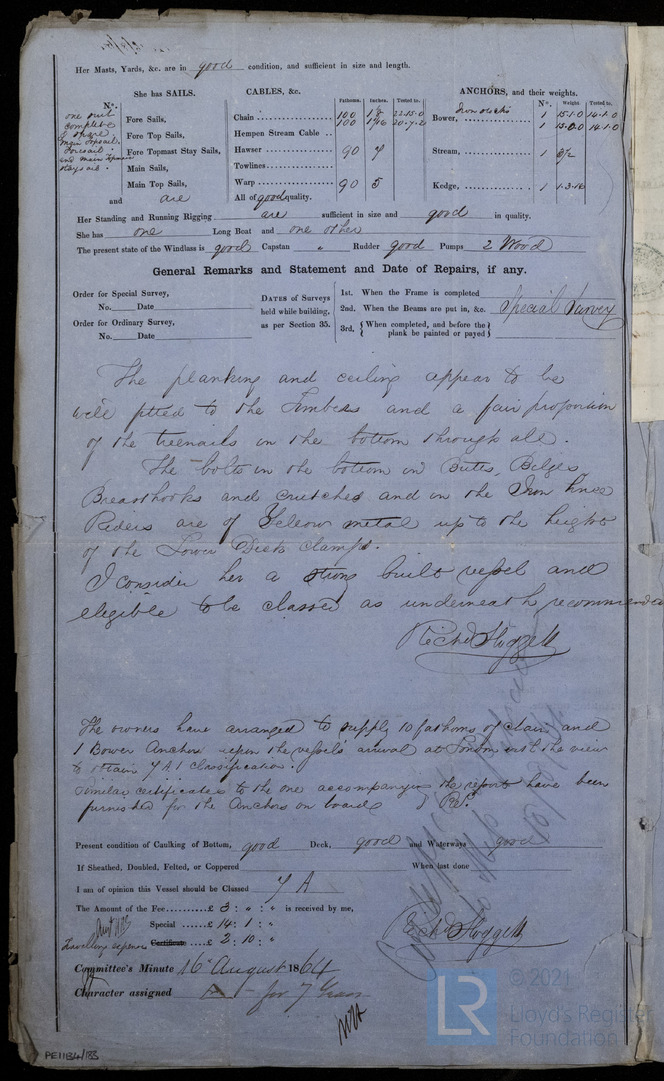 Her Masts, Yards, &c. are in good condition, and sufficient in size and length.
She has SAILS.
CABLES, &c.
ANCHORS, and their weights.
N°.
Fathoms.
Inches.
Tested to.
N°.
Weight.
Tested to.
one suit
complete
& spare
main topsail
Foresail
and main Topmast
staysail
Fore Sails,
Fore Top Sails,
Fore Topmast Stay Sails,
Main Sails,
Main Top Sails,
and are
Chain
100
100 1 1/16 20.7.2
Hempen Stream Cable ..
Hawser 90 7
Towlines
Warp 90 5
All of good quality.
Iron stocks
Bower, 1 15.1.0 14.1.0
1 15.0.0 14.1.0
Stream, 1
Kedge, 1 1.3.16
Her Standing and Running Rigging are sufficient in size and good in quality.
She has one Long Boat and one other
The present state of the Windlass is good Capstan " Rudder good Pumps 2 Wood
General Remarks and Statement and Date of Repairs, if any.
Order for Special Survey,
No. Date
Order for Ordinary Survey,
No. Date
DATES of Surveys
held while building,
as per Section 35.
1st. When the Frame is completed
2nd. When the Beams are put in, &c. Special Survey
3rd. { When completed, and before the
plank be painted or payed }
The planking and ceiling appear to be
well fitted to the Timbers and a fair proportion
of the treenails in the bottom through all.
The bolts in the bottom in Butts, Bilges
Breasthooks and crutches and in the Iron knee
Riders are of Yellow metal up to the height
of the Lower Deck clamps.
I consider her a strong built vessel and
eligible to be classed as underneath recommended
Richd Hoggett
The owners have arranged to supply 10 fathoms of chain and
1 Bower Anchor upon the vessel's arrival at London with the view
to obtain 7 A 1 classification.
Similar certificates to the one accompanying the report have been
furnished for the Anchors on board
Present condition of Caulking of Bottom, good Deck, good and Waterways good
If Sheathed, Doubled, Felted, or Coppered When last done
I am of opinion this Vessel should be Classed 7 A
The Amount of the Fee......... £ 3 : " : " is received by me,
Special ...... £ 14 : 1 : "
Travelling expenses Certificate ... £ 2 : 10 : "
Richd Hoggett
Committee's Minute 16 August 1864
Character assigned A 1 for 7 Years
PE1134/183
LR
© 2021
Lloyd's Register
Foundation